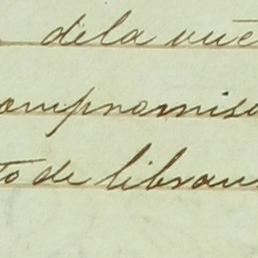 dela vue
compromiso
to de libran